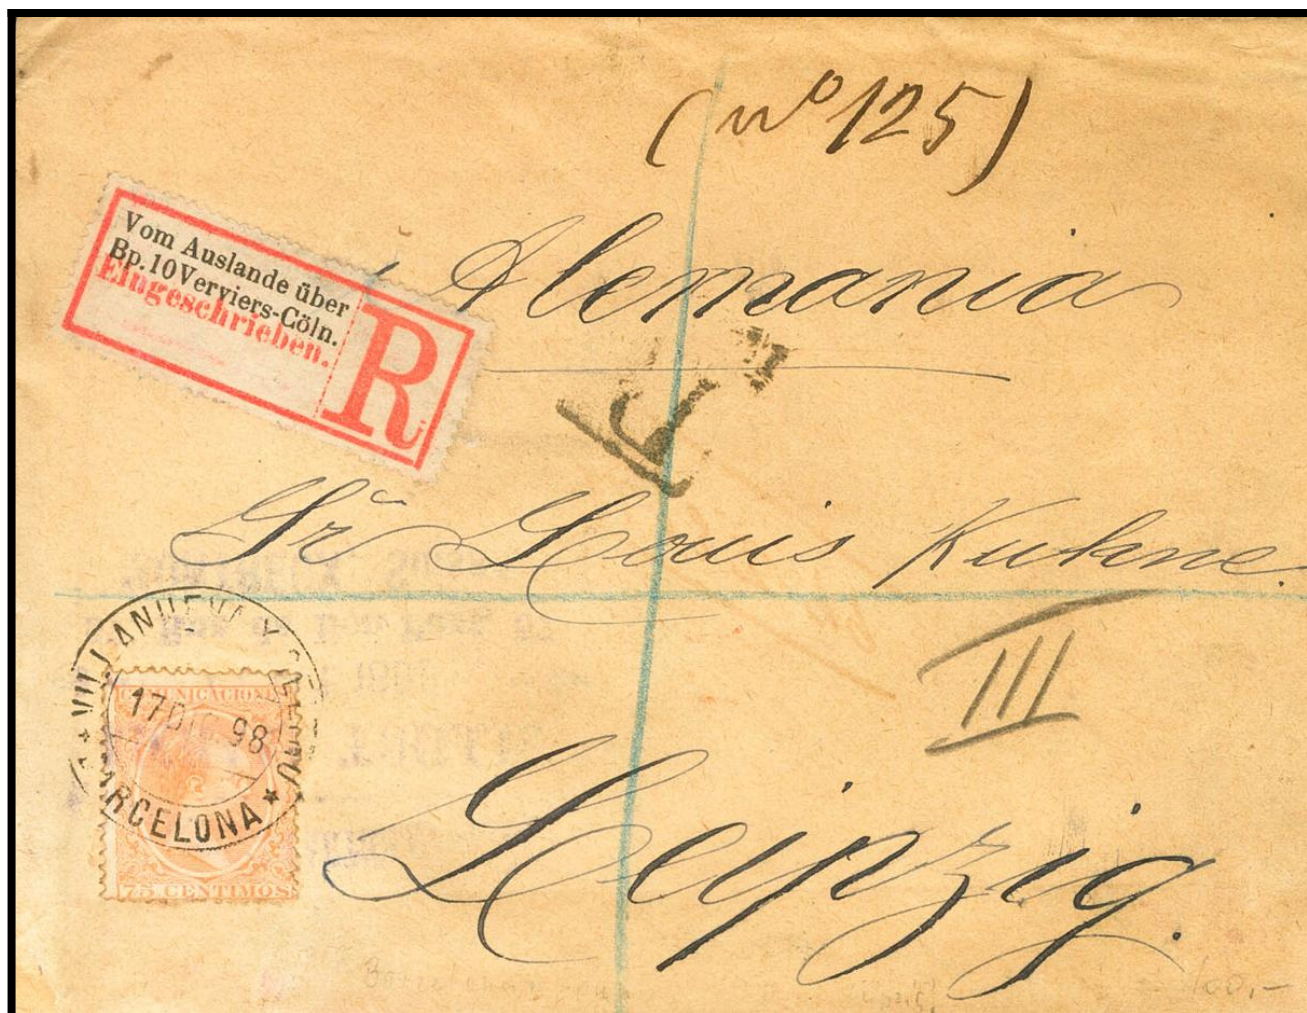 (nº 125)
Vom Auslande über
Bp. 10 Verviers-Cöln.
Eingeschrieben.
R
Alemania
Sr Louis Kuhne.
III
VILLANUEVA Y
17 DIC 98
BARCELONA
COMUNICACIONES
75 CENTIMOS
Leipzig.
100,-